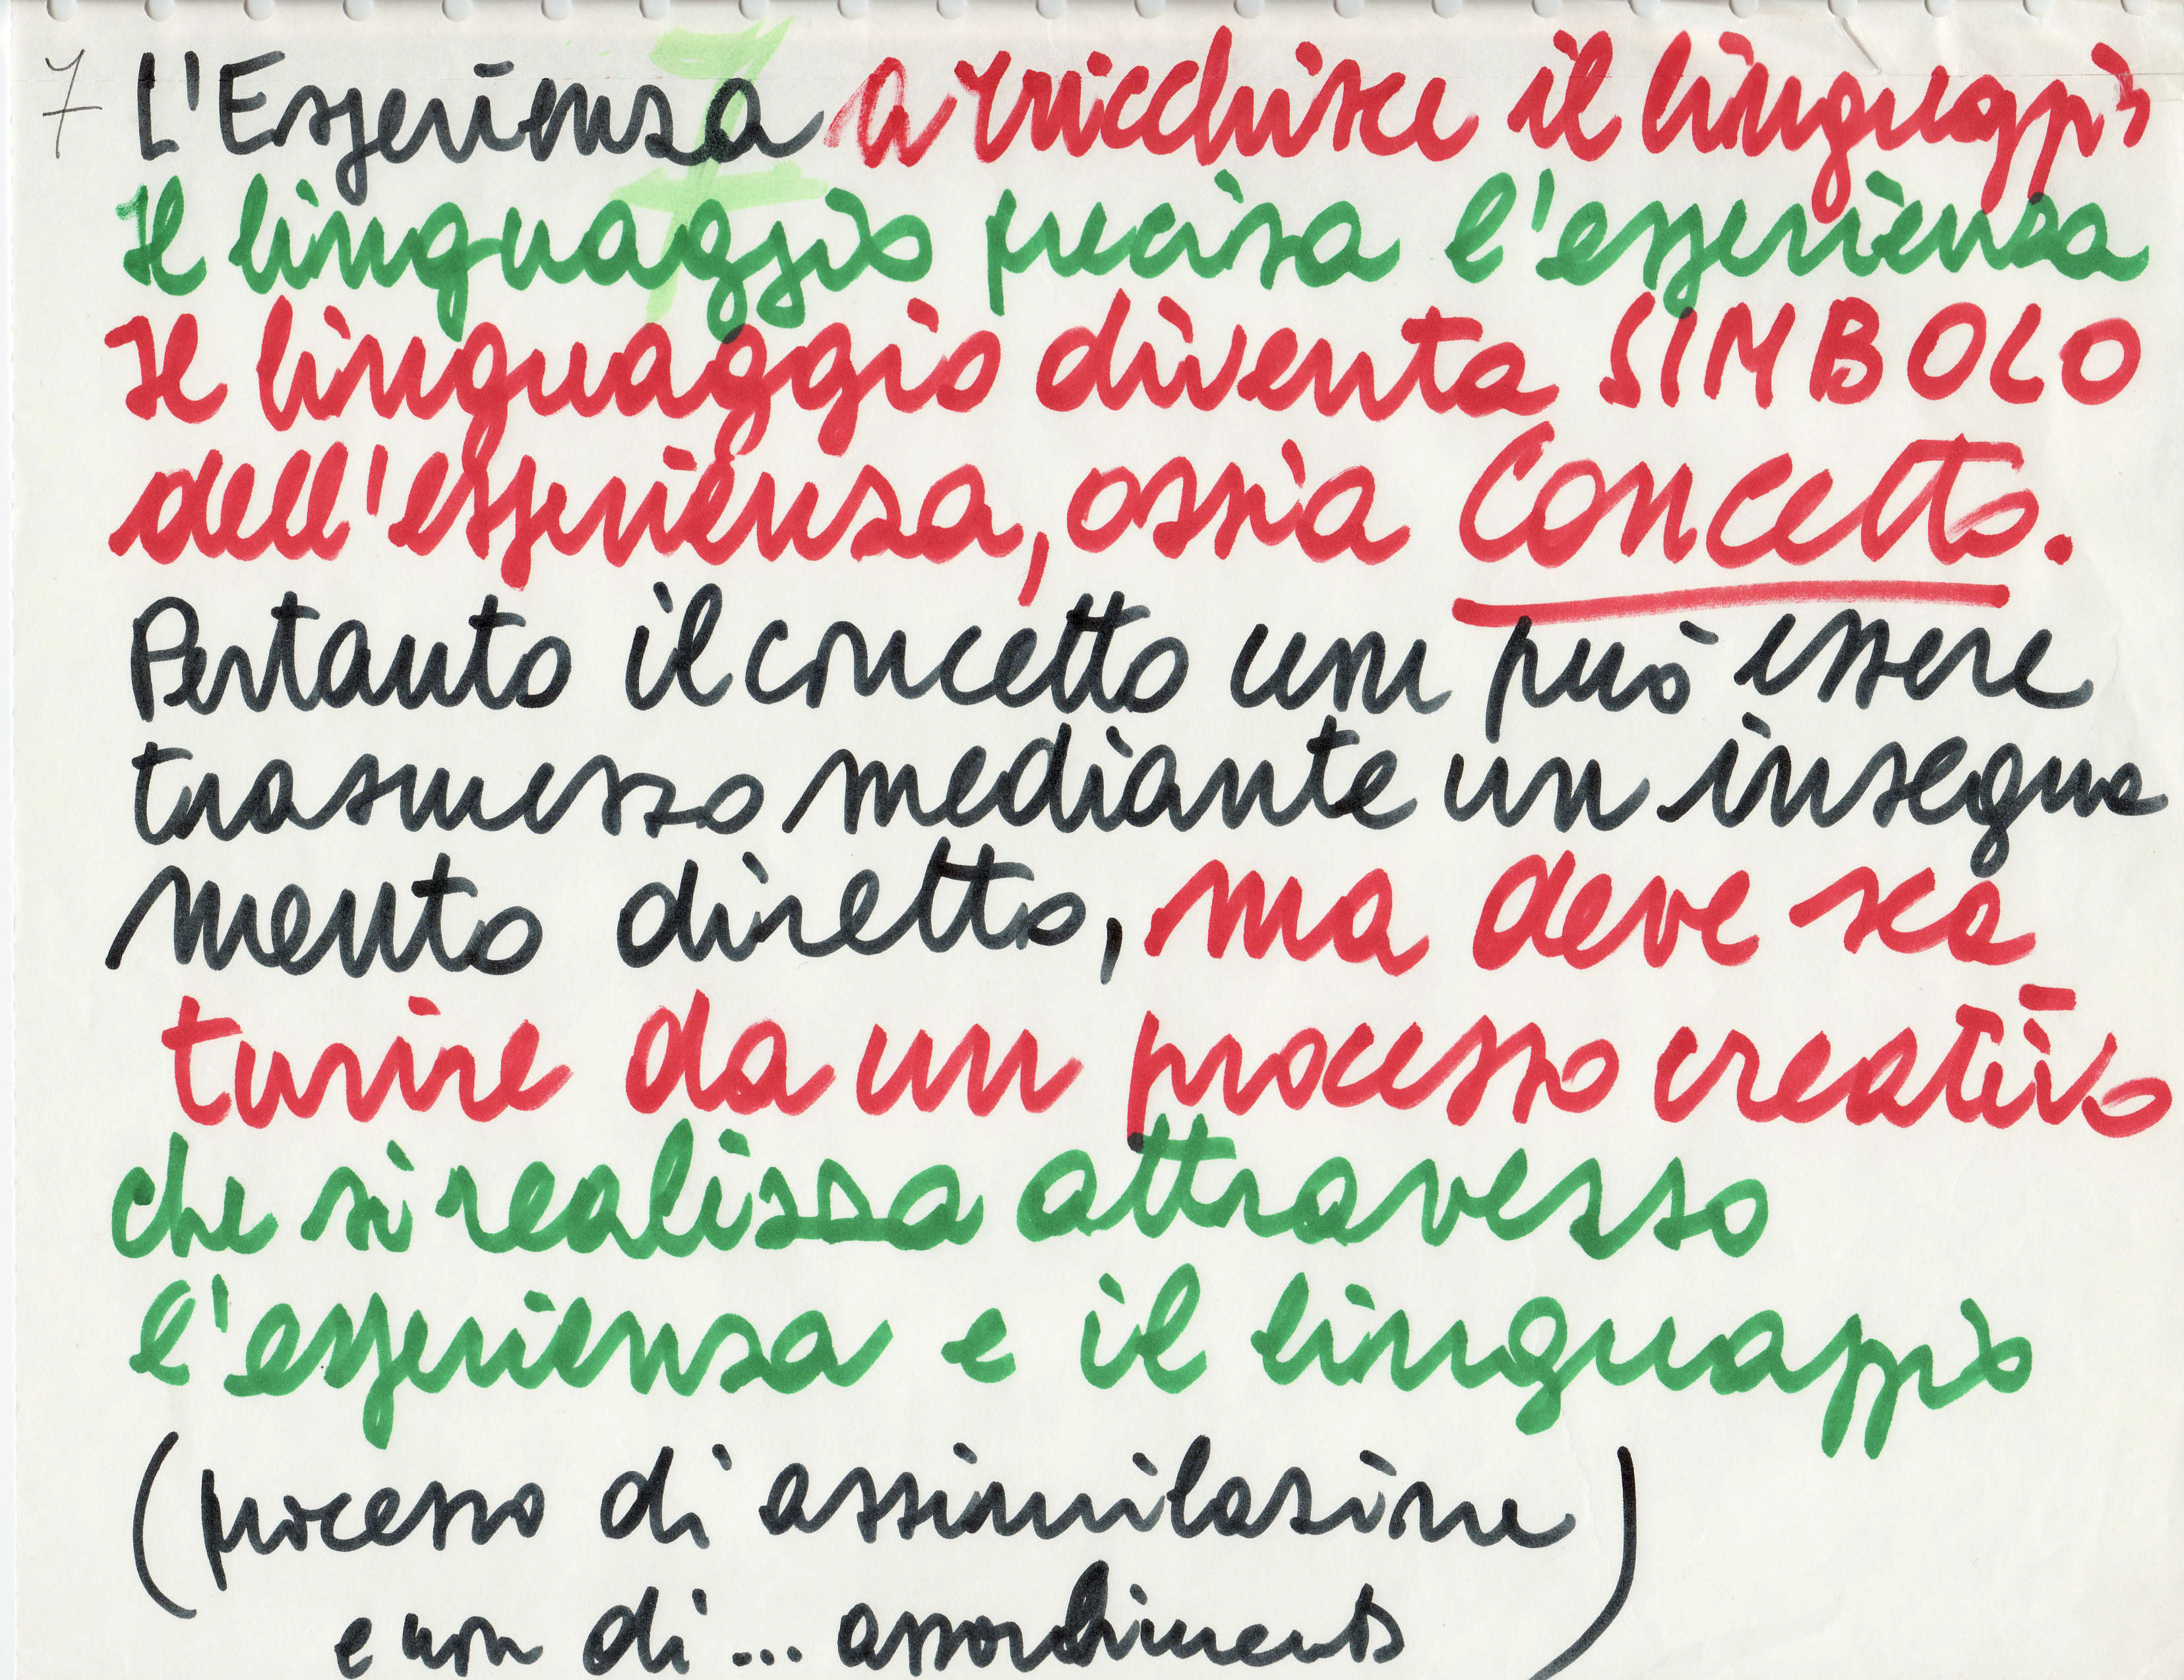 7 L'Esperienza arricchisce il linguaggio
Il linguaggio precisa l'esperienza
Il linguaggio diventa SIMBOLO
dell'esperienza, ossia Concetto.
Pertanto il concetto non può essere
trasmesso mediante un insegna
mento diretto, ma deve sca
turire da un processo creativo
che si realizza attraverso
l'esperienza e il linguaggio
(processo di assimilazione
e non di... assorbimento)